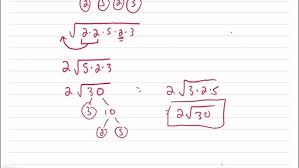 √2·2·5·2·3
2√5·2·3
2√30 = 2√3·2·5
3 10 2√30
2